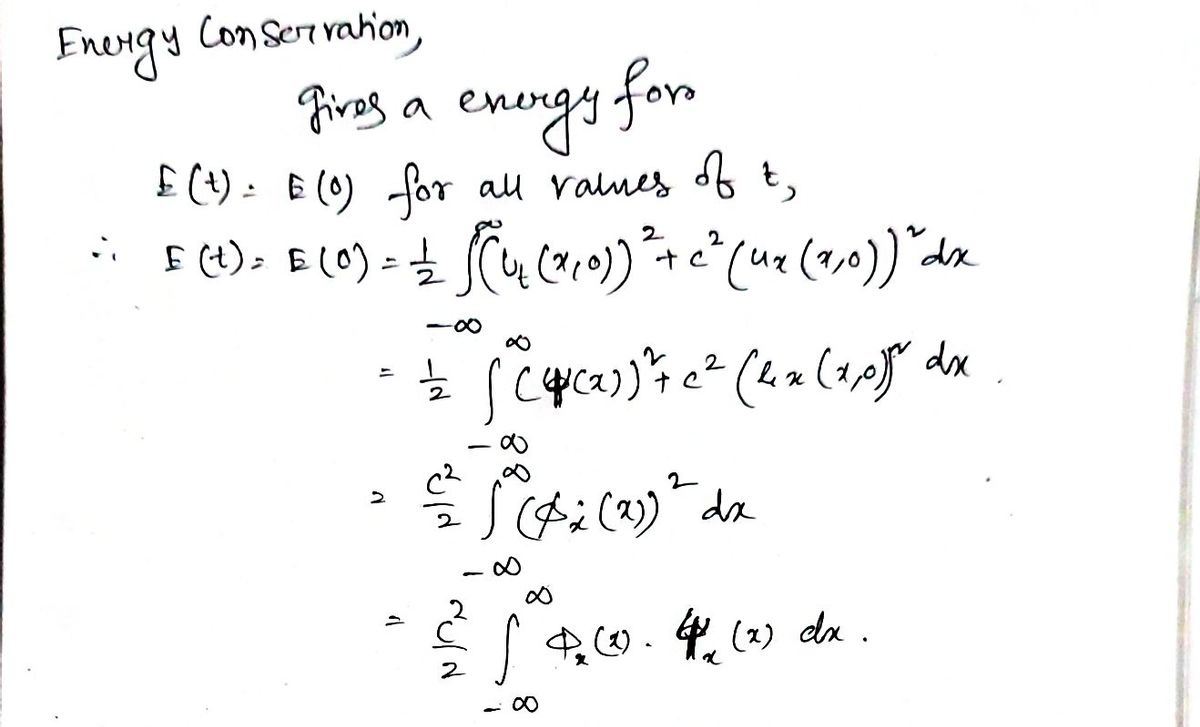 Energy Conservation,
gives a energy for
E(t) = E(0) for all values of t,
∴ E(t) = E(0) = 1/2 ∫_{-∞}^{∞} (U_t(x,0))² + c² (u_x(x,0))² dx
= 1/2 ∫_{-∞}^{∞} (ψ(x))² + c² (u_x(x,0))² dx.
= c²/2 ∫_{-∞}^{∞} (ϕ_x(x))² dx
= c²/2 ∫_{-∞}^{∞} ϕ_x(x) . ψ_x(x) dx.